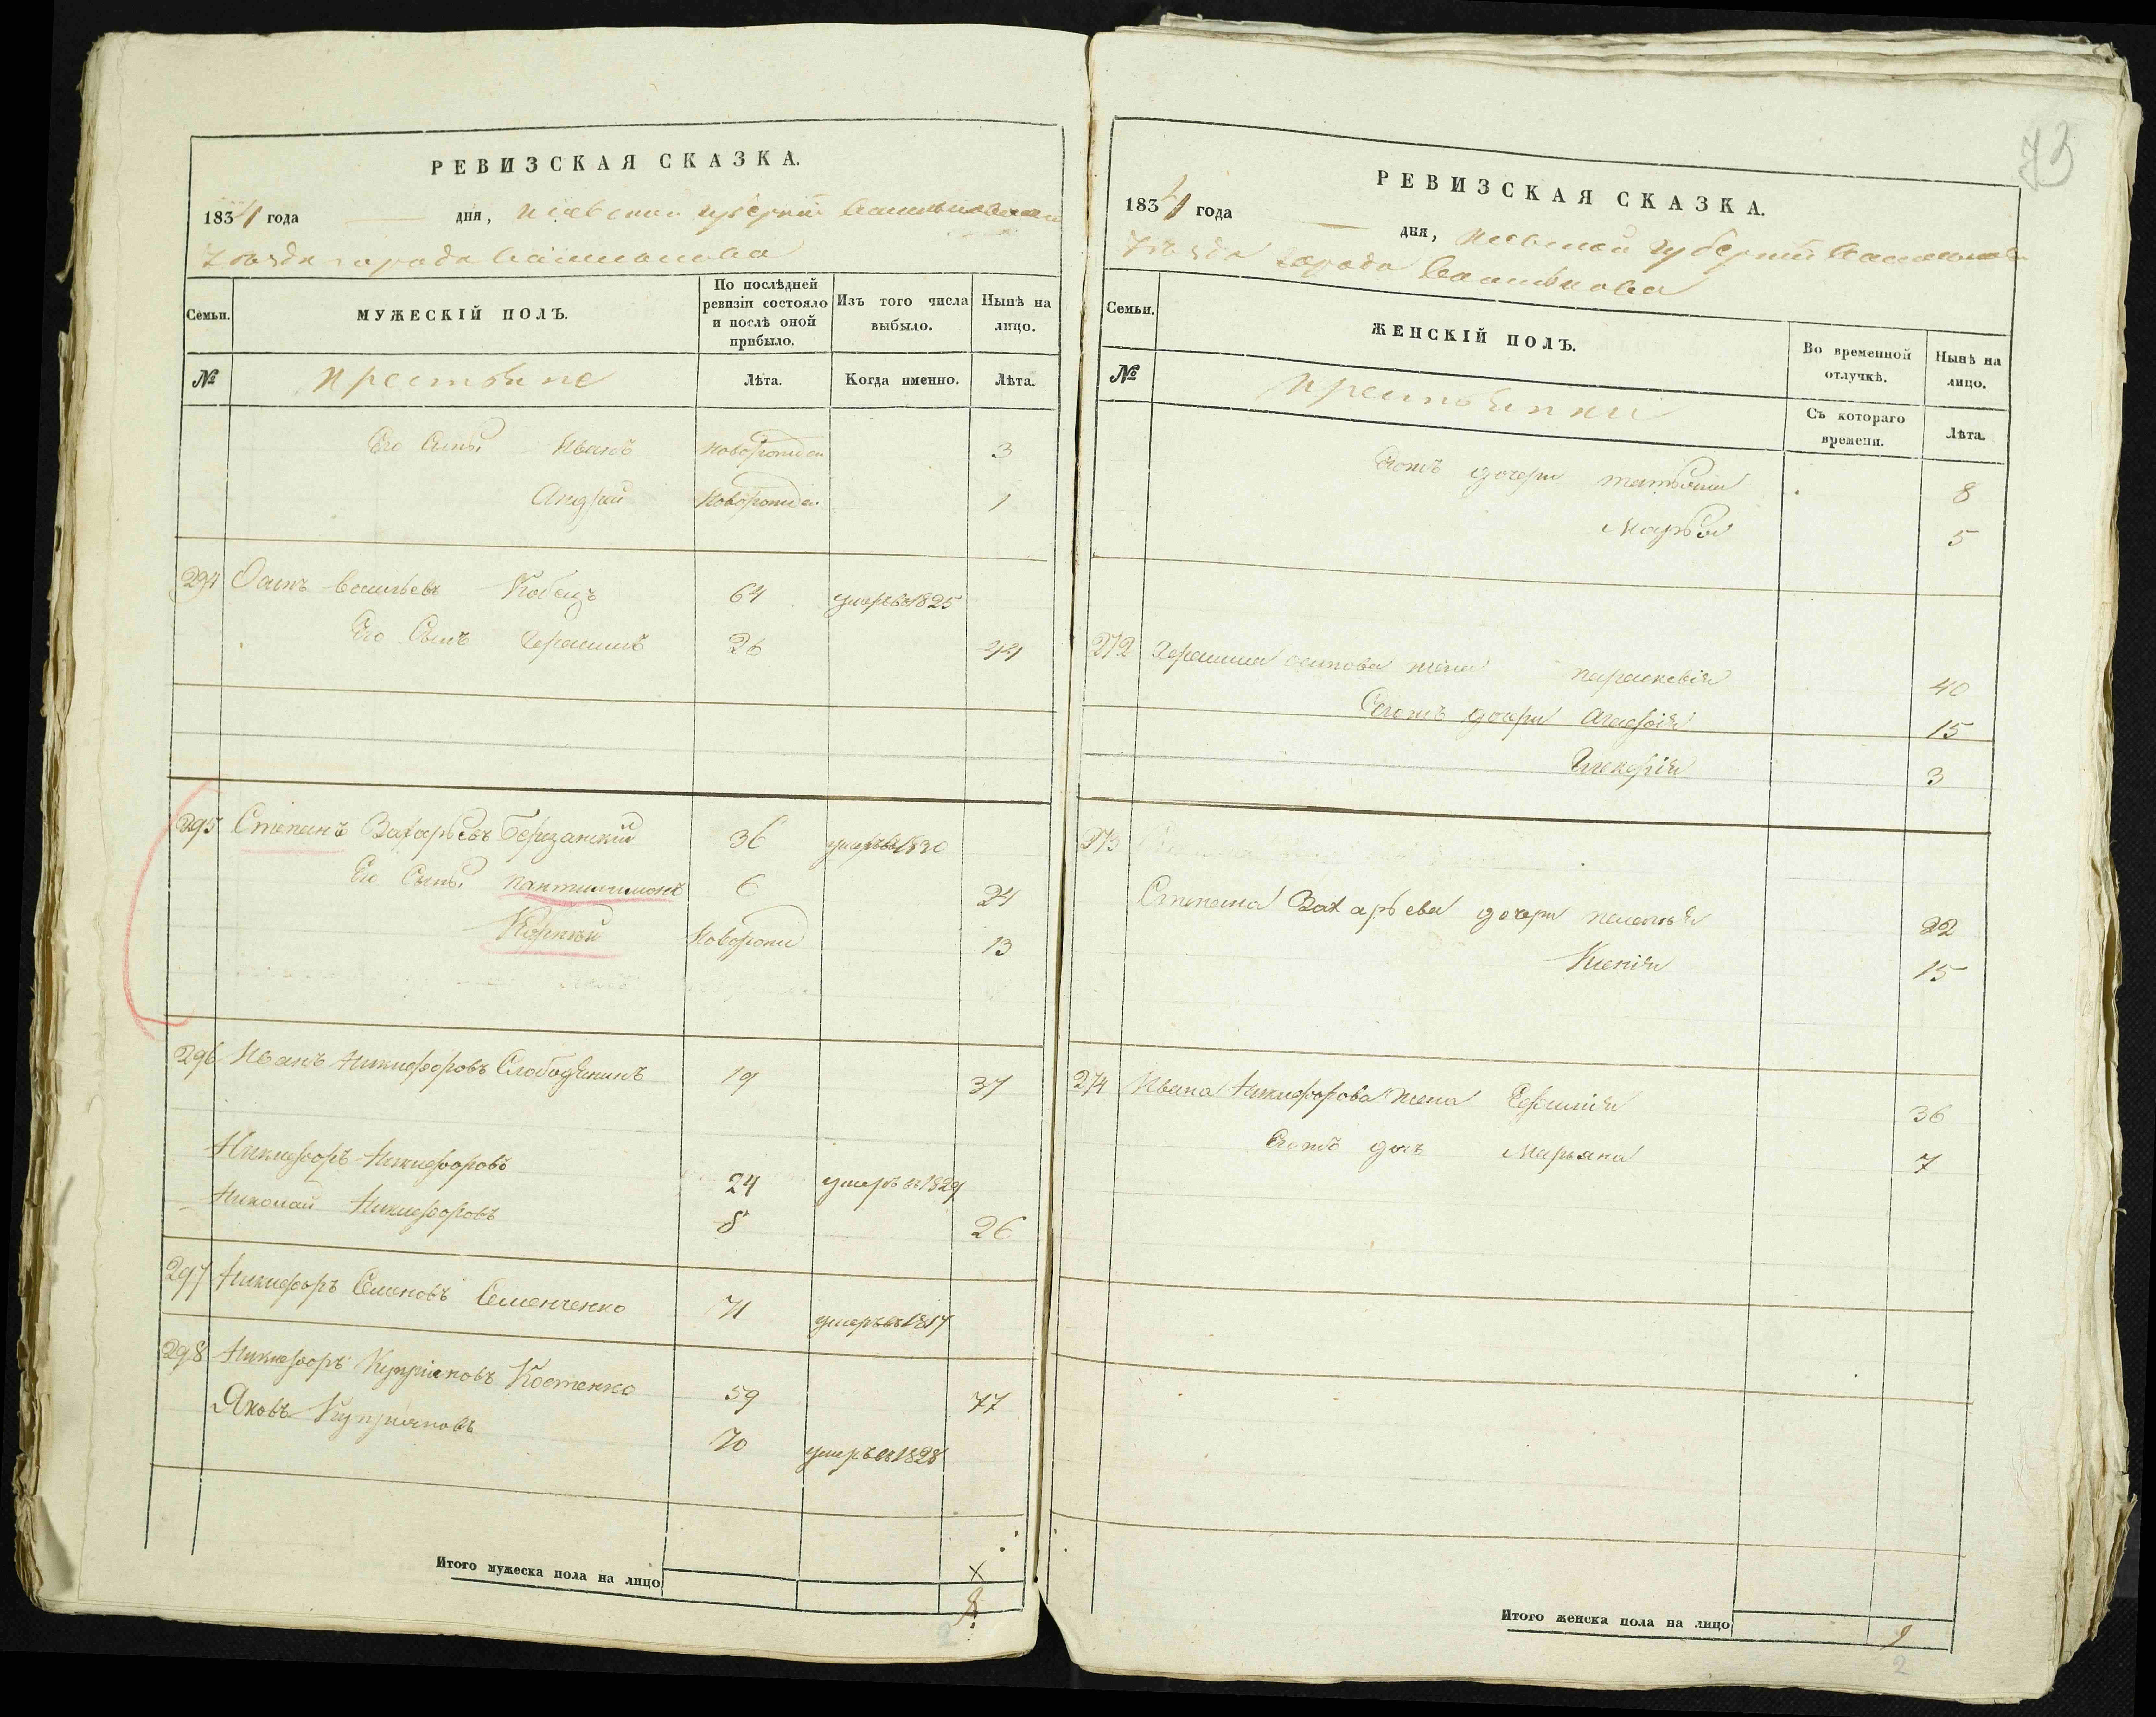 РЕВИЗСКАЯ СКАЗКА.
1834 года дня, Киевской губернии Васильковского
Уѣзда города Василькова
Семьи.
МУЖЕСКІЙ ПОЛЪ.
По послѣдней ревизіи состояло и послѣ оной прибыло.
Изъ того числа выбыло.
Нынѣ на лицо.
№
Крестьяне
Лѣта.
Когда именно.
Лѣта.
Его Сыны Иванъ новорожден 3
Андрей Новорожден 1
294 Осипъ Васильевъ Кобецъ 64 умеръ в 1825
Его Сынъ Герасимъ 26 44
295 Степанъ Захарьевъ Березанскій 36 умеръ в 1830
Его Сыны Пантилимонъ 6 24
Корнѣй Новорожд 13
296 Иванъ Никифоровъ Слободянинъ 19 37
Никифоръ Никифоровъ 24 умеръ в 1829
Николай Никифоровъ 8 26
297 Никифоръ Семеновъ Семенченко 71 умеръ в 1817
298 Никифоръ Купріяновъ Костенко 59 77
Яковъ Купріяновъ 70 умеръ в 1828
Итого мужеска пола на лицо
73
РЕВИЗСКАЯ СКАЗКА.
1834 года дня, Киевской губерніи Васильковск
Уѣзда города Василькова
Семьи.
ЖЕНСКІЙ ПОЛЪ.
Во временной отлучкѣ.
Нынѣ на лицо.
№
Крестьянки
Съ котораго времени.
Лѣта.
Егожъ дочери татьяна 8
Марья 5
272 Герасима осипова жена параскевія 40
Егожъ дочери Агафія 15
Гликерія 3
273
Степана Захарьева дочери пелагія 22
Ксенія 15
274 Ивана Никифорова жена Ефимія 36
Егожъ дочь Марьяна 7
Итого женска пола на лицо 9
2